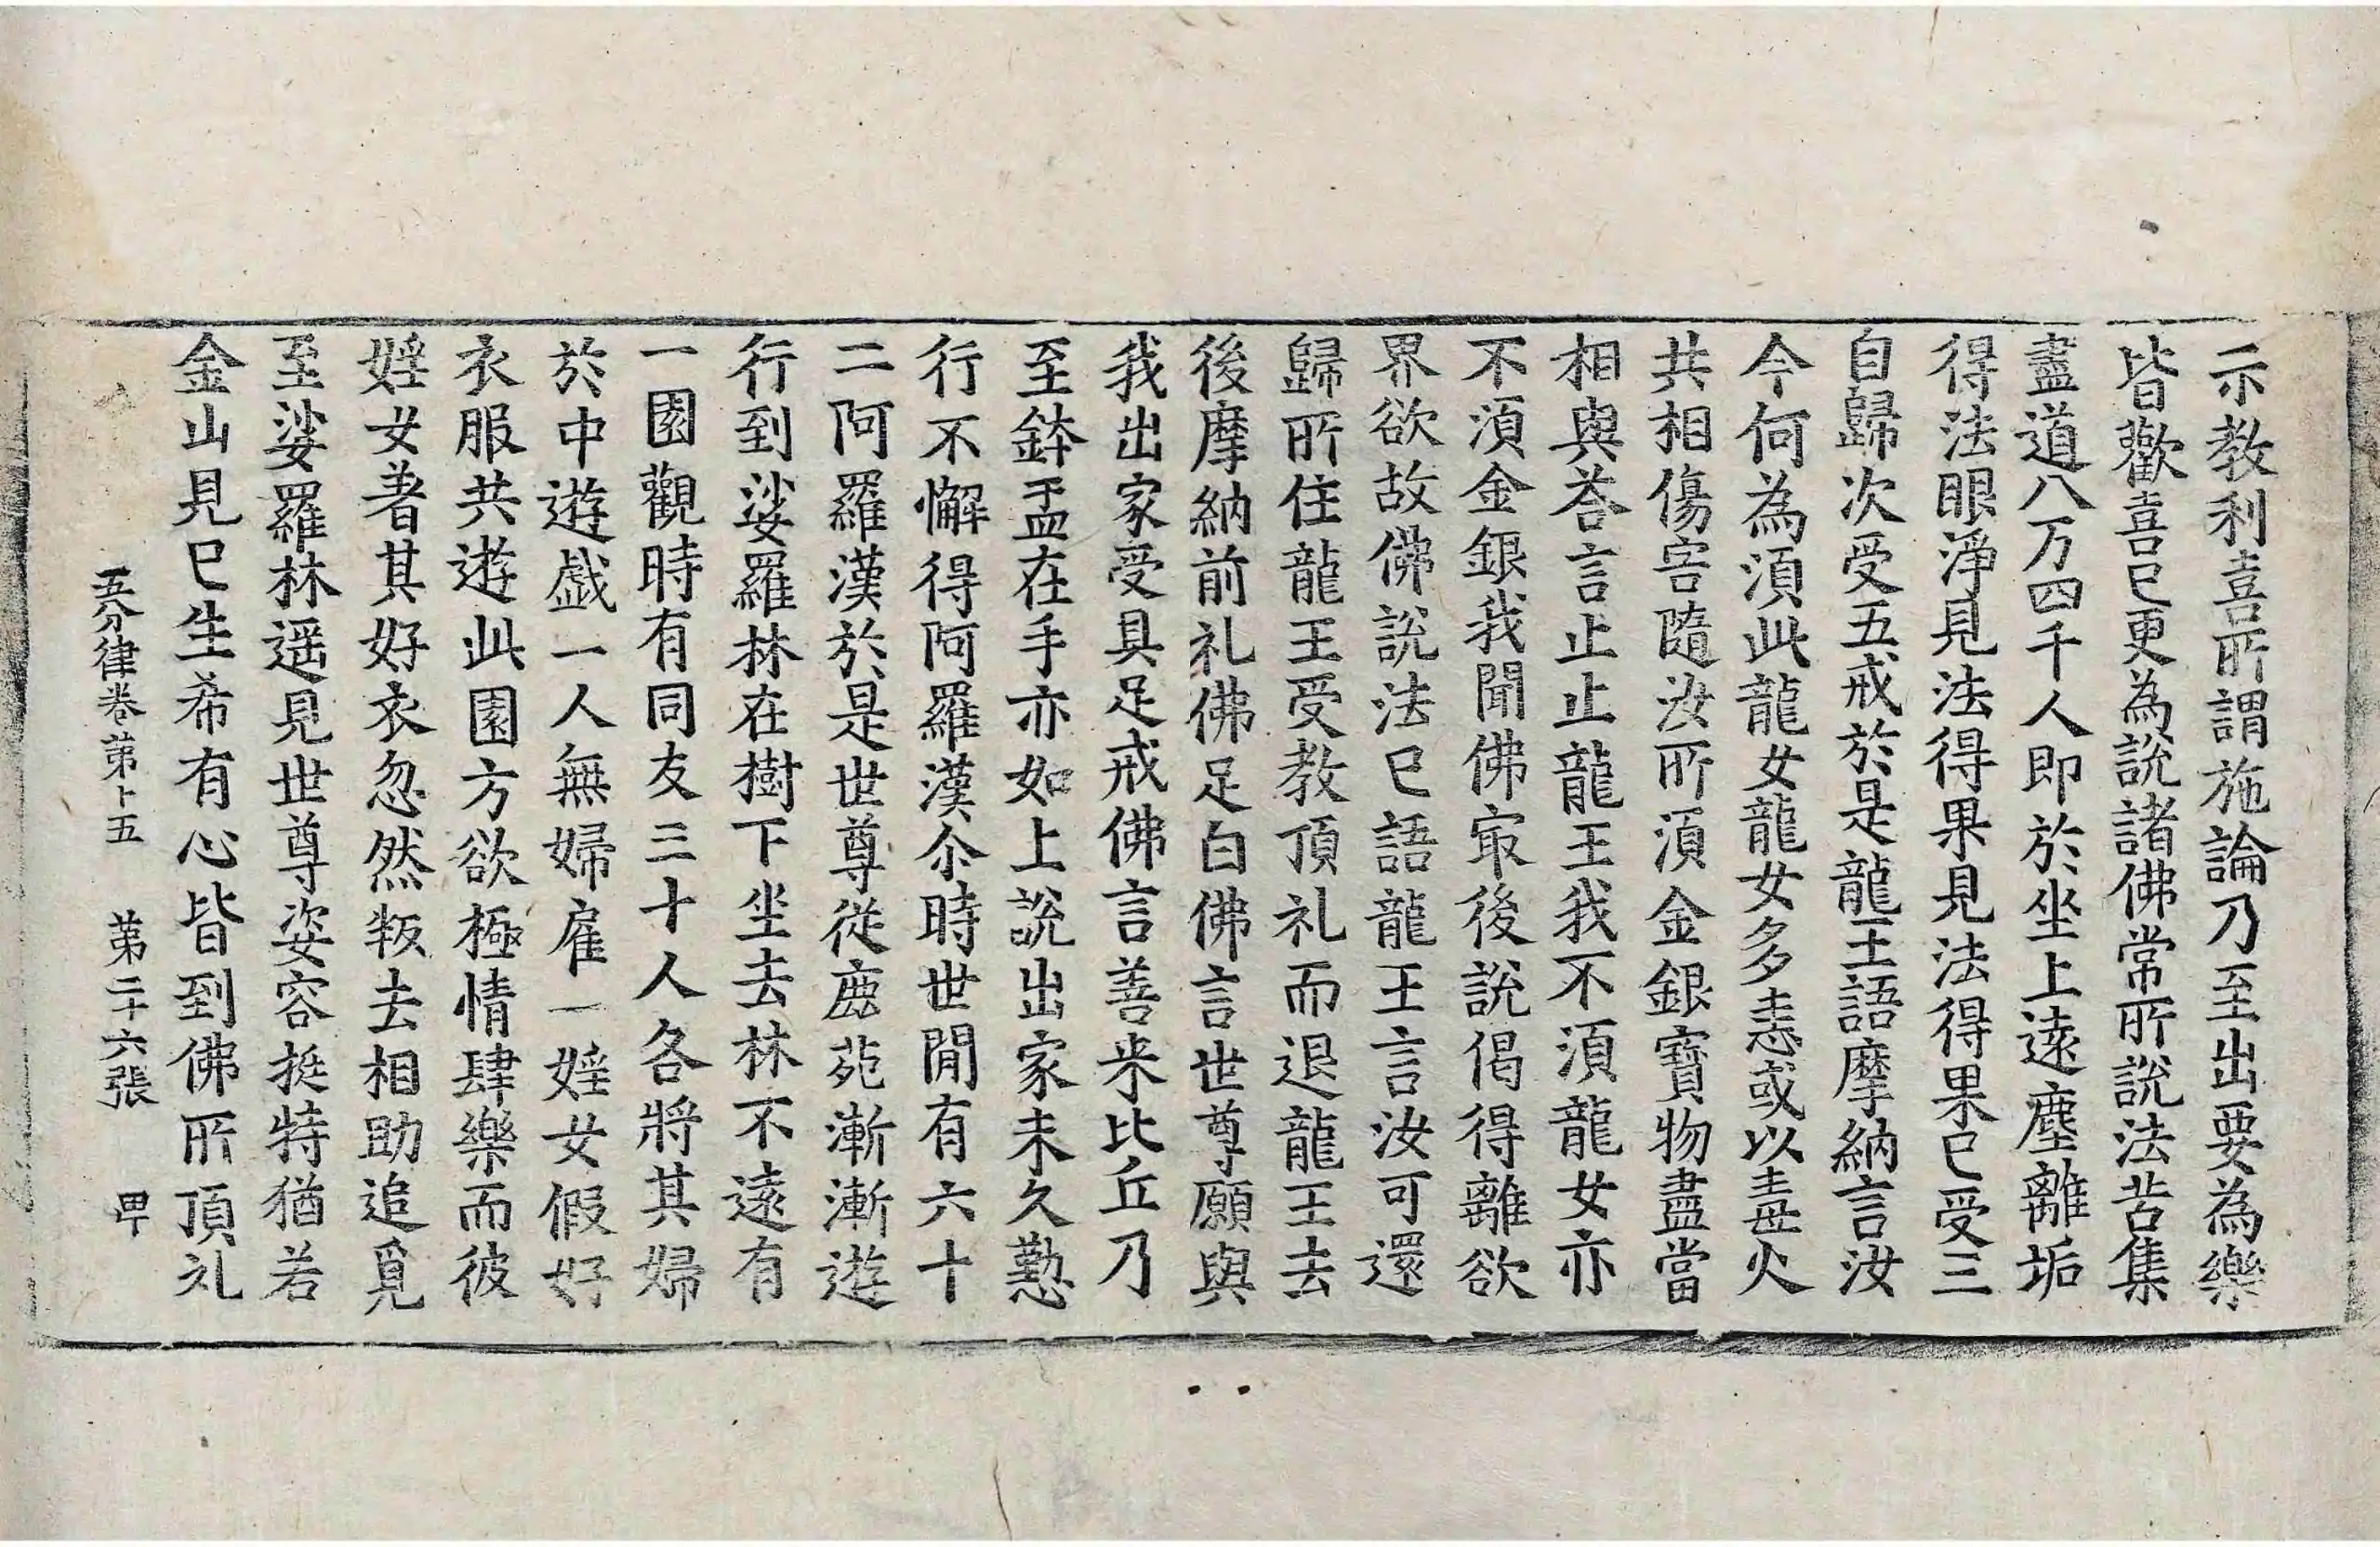 示教利喜所謂施論乃至出要為樂
皆歡喜已更為說諸佛常所說法苦集
盡道八万四千人即於坐上遠塵離垢
得法眼淨見法得果見法得果已受三
自歸次受五戒於是龍王語摩納言汝
今何為湏此龍女龍女多恚或以毒火
共相傷害隨汝所湏金銀寶物盡當
相與荅言止止龍王我不湏龍女亦
不湏金銀我聞佛冣後說偈得離欲
界欲故佛說法已語龍王言汝可還
歸所住龍王受教頂礼而退龍王去
後摩納前礼佛足白佛言世尊願與
我出家受具足戒佛言善来比丘乃
至鉢盂在手亦如上說出家未久懃
行不懈得阿羅漢尒時世閒有六十
二阿羅漢於是世尊從鹿苑漸漸遊
行到娑羅林在樹下坐去林不遠有
一園觀時有同友三十人各將其婦
於中遊戲一人無婦雇一婬女假好
衣服共遊此園方欲極情肆樂而彼
婬女著其好衣忽然叛去相助追覓
至娑羅林遥見世尊姿容挺特猶若
金山見已生希有心皆到佛所頂礼
五分律卷第十五 第二十六張 甲